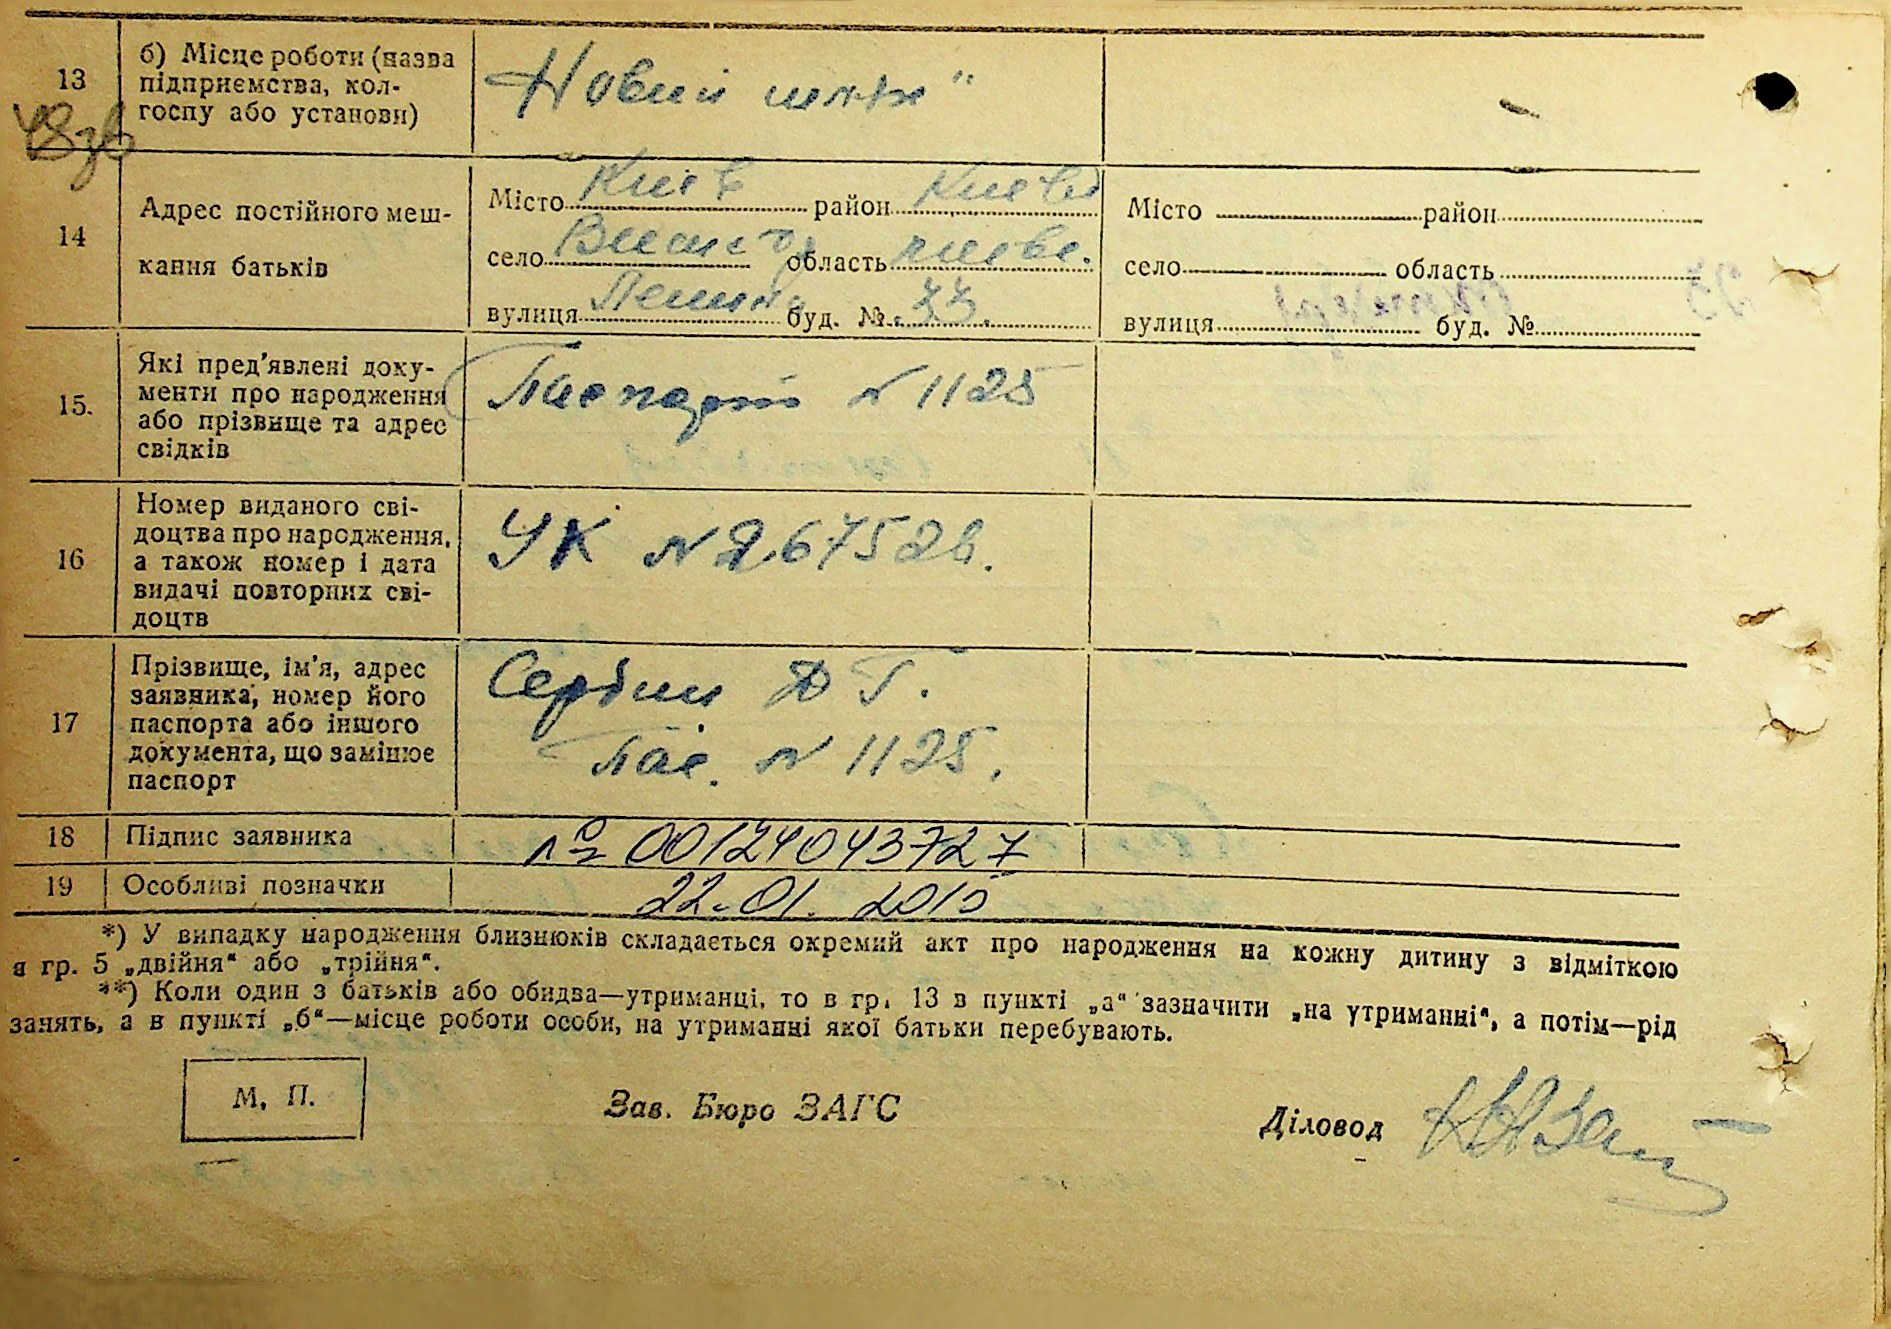 13
б) Місце роботи (назва
підприємства, кол-
госпу або установи)
„Новий шлях"
48зв
14
Адрес постійного меш-
кання батьків
Місто Київ район Києво
село область києвс.
вулиця Леніна буд. № 33.
Місто район
село область
вулиця буд. №
15.
Які пред'явлені доку-
менти про народження
або прізвище та адрес
свідків
Паспорт № 1125
16
Номер виданого сві-
доцтва про народження,
а також номер і дата
видачі повторних сві-
доцтв
УК №
17
Прізвище, ім'я, адрес
заявника, номер його
паспорта або іншого
документа, що замінює
паспорт
Сербин Д Г.
Пас. № 1125.
18 Підпис заявника
№ 00124043727
19 Особливі позначки
22.01. 2015
*) У випадку народження близнюків складається окремий акт про народження на кожну дитину з відміткою
в гр. 5 „двійня“ або „трійня“.
**) Коли один з батьків або обидва—утриманці, то в гр. 13 в пункті „а“ зазначити „на утриманні“, а потім—рід
занять, а в пункті „б“—місце роботи особи, на утриманні якої батьки перебувають.
М. П.
Зав. Бюро ЗАГС
Діловод